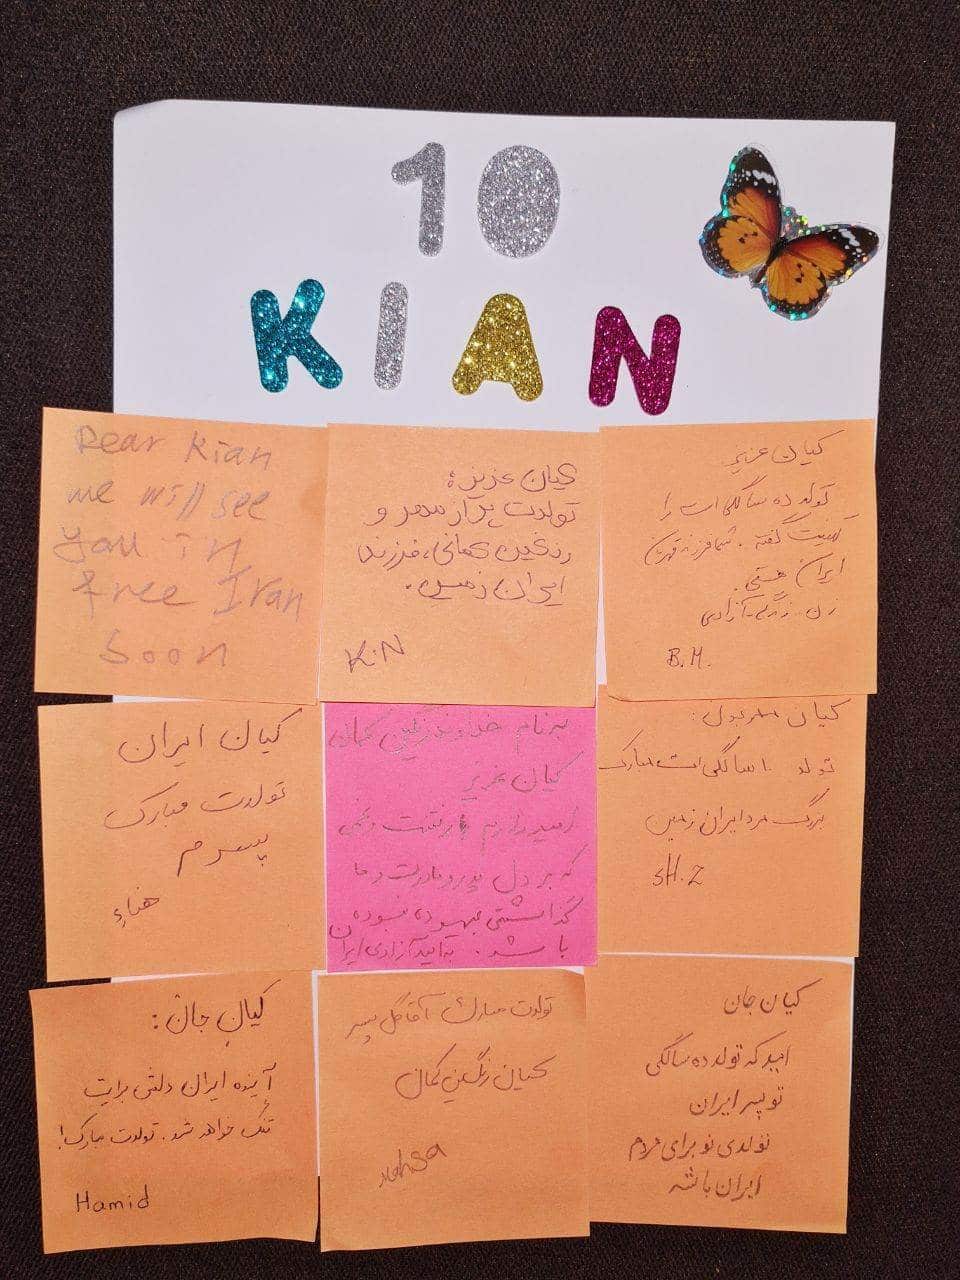 10
KIAN
Dear Kian
we will see
you in
free Iran
Soon
کیان عزیز:
تولدت پر از مهر و
رنگین کمانی، فرزند
ایران زمین.
K.N
کیان عزیز
تولد ده سالگی ات را
تهنیت گفته. شما فرزند قهرمان
ایران هستی.
زن. زندگی. آزادی
B.M.
کیان ایران
تولدت مبارک
پسرم
هناء
به نام خداوند رنگین کمان
کیان عزیز
امیدوارم رفتنت و غمی
که بر دل پدر و مادرت و ما
گذاشتی بیهوده نبوده
باشد. به امید آزادی ایران
کیان
تولد ۱۰ سالگی ات مبارک
بزرگ مرد ایران زمین
SH.Z
کیان جان:
آینده ایران دلش برایت
تنگ خواهد شد. تولدت مبارک!
Hamid
تولدت مبارک آقا گل پسر
کیان رنگین کمان
Mahsa
کیان جان
امید که تولد ده سالگی
تو پسر ایران
تولدی نو برای مردم
ایران باشه